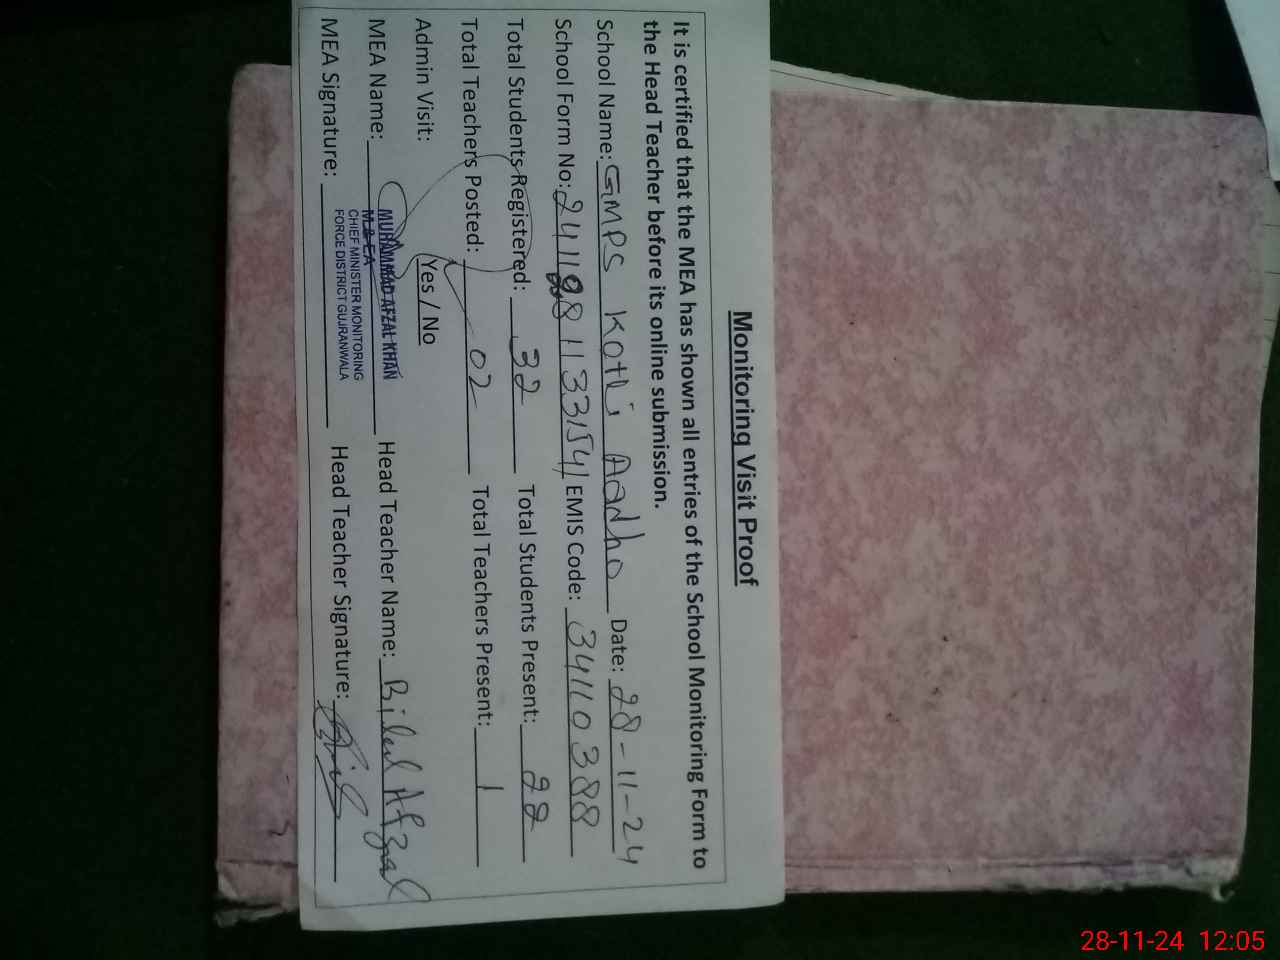 Monitoring Visit Proof
It is certified that the MEA has shown all entries of the School Monitoring Form to
the Head Teacher before its online submission.
School Name: GMPS Kotli Aadho Date: 28-11-24
School Form No: EMIS Code: 34110388
Total Students Registered: 32 Total Students Present: 22
Total Teachers Posted: 02 Total Teachers Present: 1
Admin Visit: Yes / No
MEA Name: MUHAMMAD AFZAL KHAN Head Teacher Name: Bilal Afzal
M & EA
CHIEF MINISTER MONITORING
FORCE DISTRICT GUJRANWALA
MEA Signature: Head Teacher Signature:
28-11-24 12:05